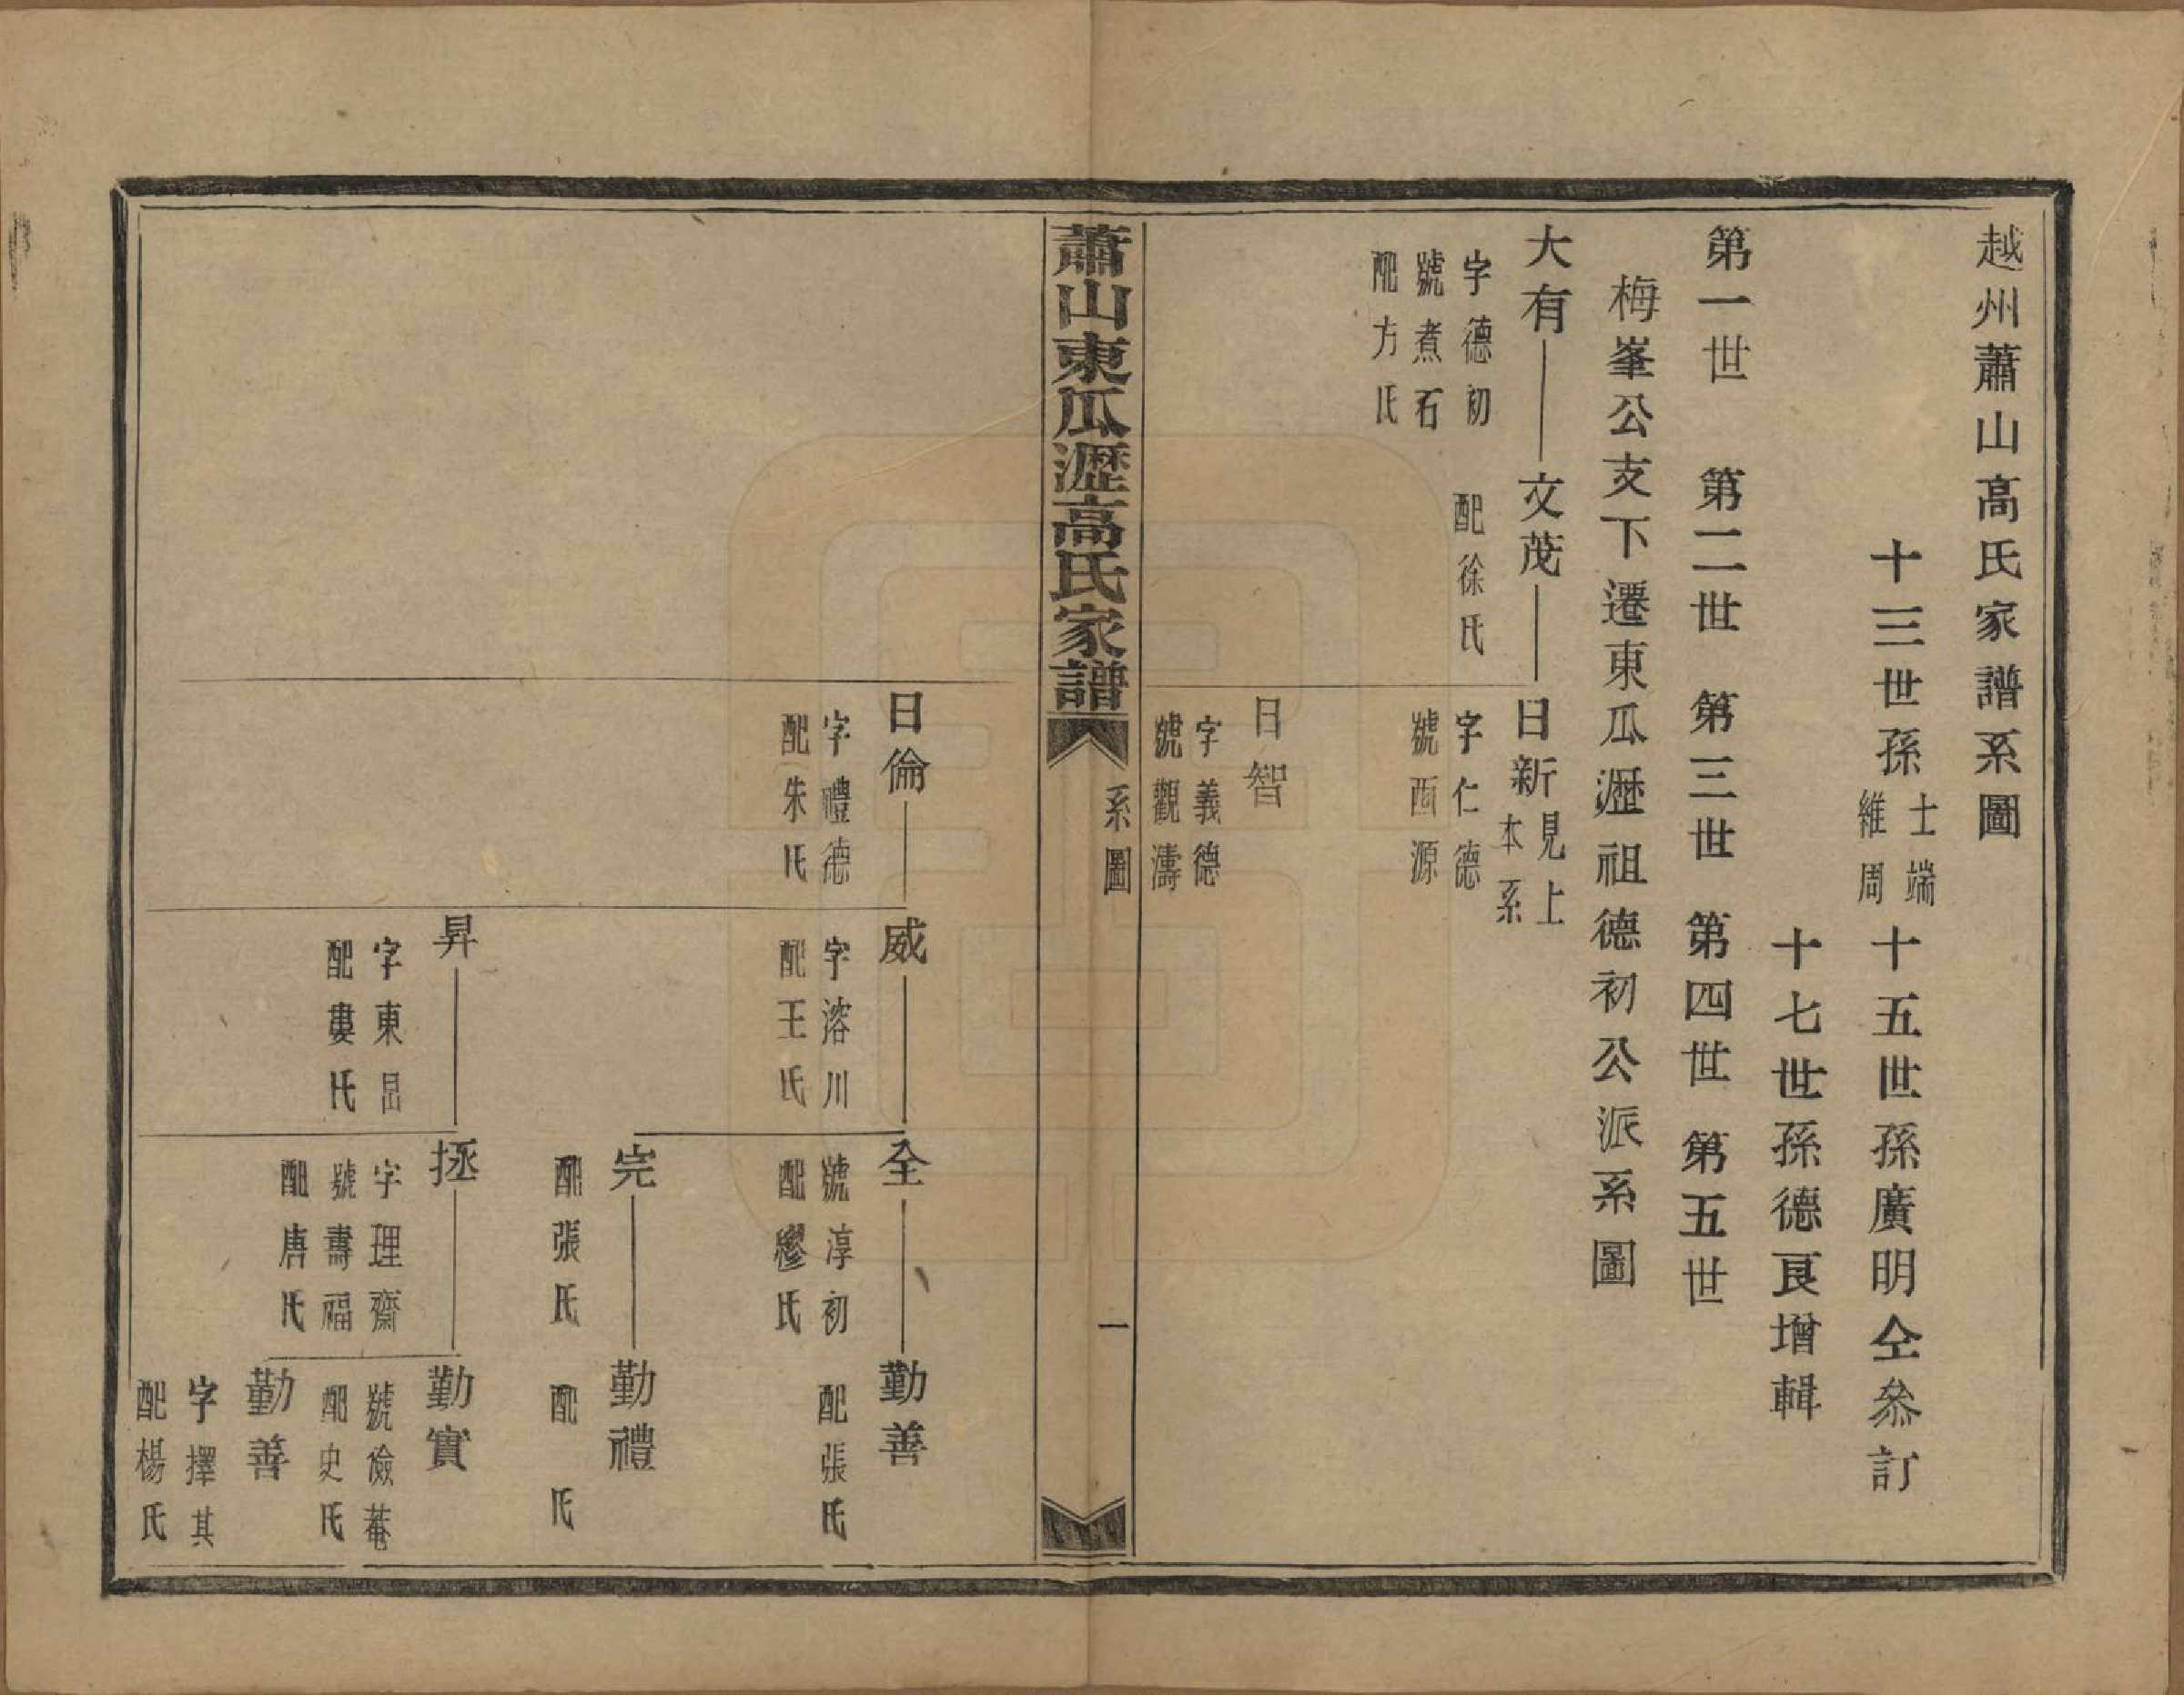 越州蕭山高氏家譜系圖
十三世孫士端維周
十五世孫廣明仝叅訂
十七世孫德良增輯
第一世 第二世 第三世 第四世 第五世
梅峯公支下遷東瓜瀝祖德初公派系圖
大有
字德初
號煮石
配方氏
文茂
配徐氏
日新見上本系
字仁德
號西源
日智
字義德
號觀濤
蕭山東瓜瀝高氏家譜
系圖
一
日倫
字禮德
配朱氏
威
字溶川
配王氏
全
號淳初
配繆氏
勤善
配張氏
完
配張氏
勤禮
配 氏
昇
字東昌
配婁氏
拯
字理齋
號壽福
配唐氏
勤實
號儉菴
配史氏
勤善
字擇其
配楊氏